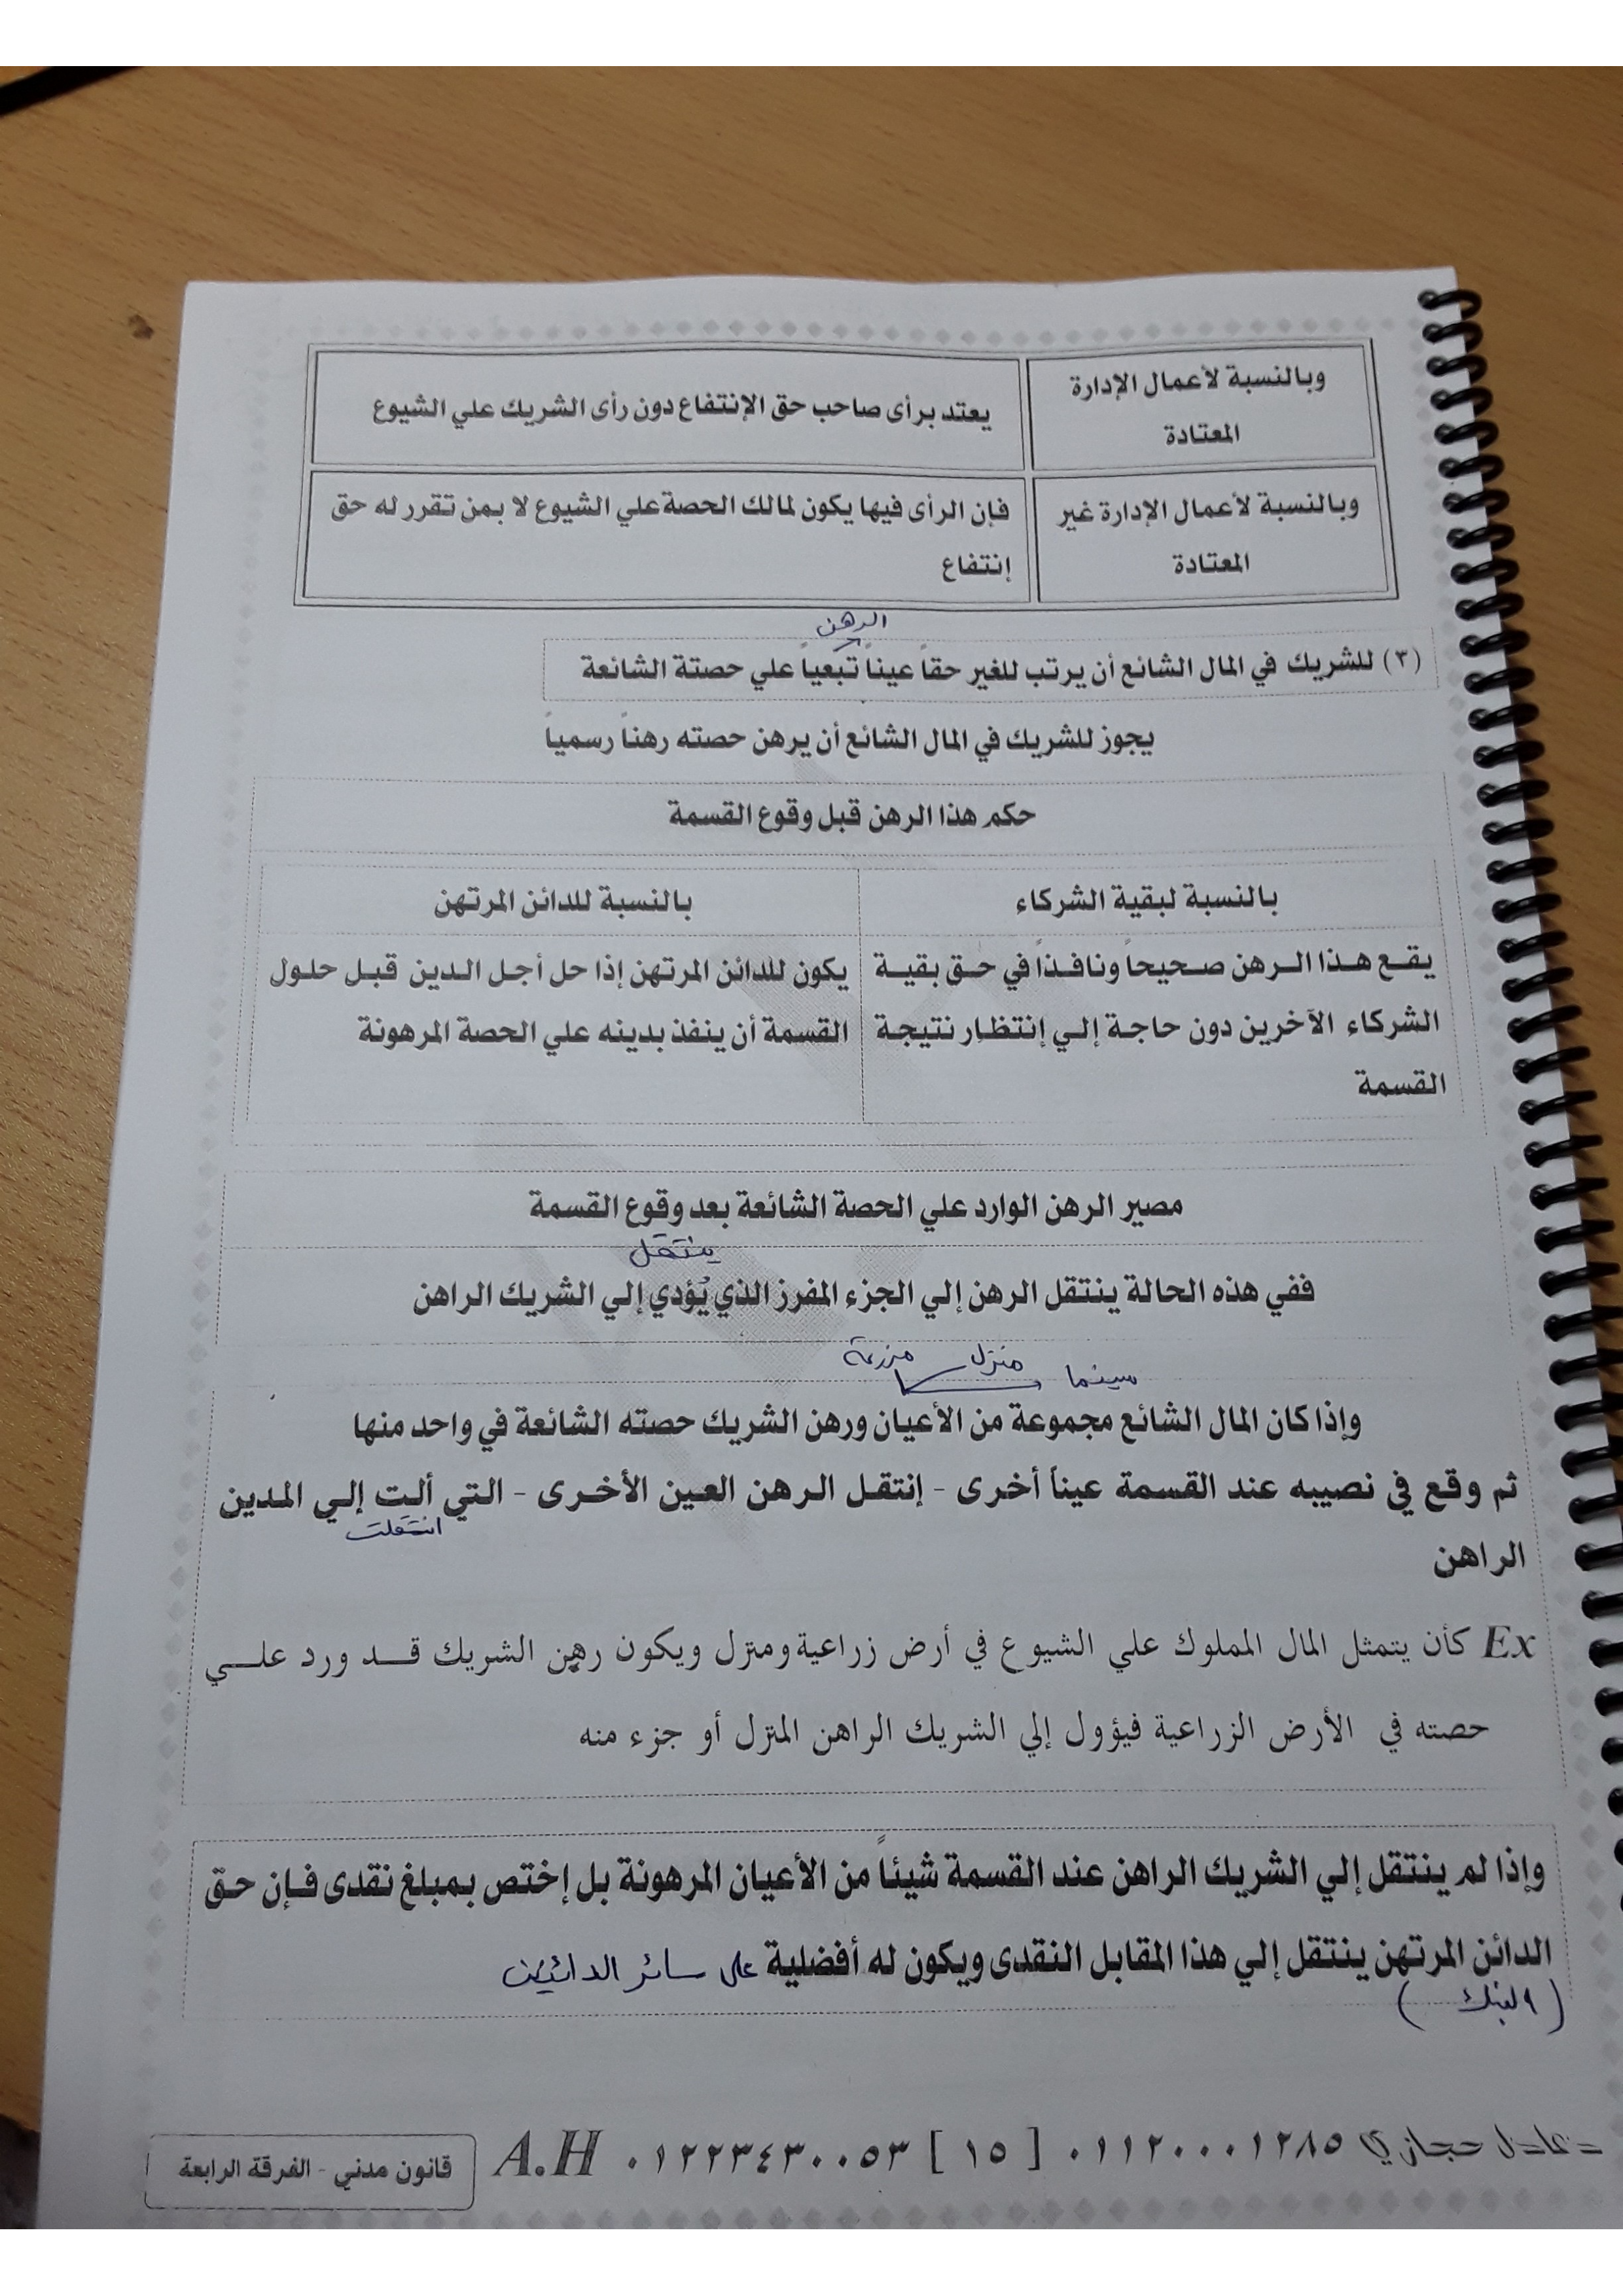 وبالنسبة لأعمال الإدارة
المعتادة
يعتد برأى صاحب حق الإنتفاع دون رأى الشريك علي الشيوع
وبالنسبة لأعمال الإدارة غير
المعتادة
فإن الرأى فيها يكون لمالك الحصة علي الشيوع لا بمن تقرر له حق
إنتفاع
الرهن
(٣) للشريك في المال الشائع أن يرتب للغير حقاً عيناً تبعياً علي حصتة الشائعة
يجوز للشريك في المال الشائع أن يرهن حصته رهناً رسمياً
حكم هذا الرهن قبل وقوع القسمة
بالنسبة لبقية الشركاء
يقع هذا الرهن صحيحاً ونافذاً في حق بقية
الشركاء الآخرين دون حاجة إلي إنتظار نتيجة
القسمة
بالنسبة للدائن المرتهن
يكون للدائن المرتهن إذا حل أجل الدين قبل حلول
القسمة أن ينفذ بدينه علي الحصة المرهونة
مصير الرهن الوارد علي الحصة الشائعة بعد وقوع القسمة
ينتقل
ففي هذه الحالة ينتقل الرهن إلي الجزء المفرز الذي يُؤدي إلي الشريك الراهن
سينما منزل مزرعة
وإذا كان المال الشائع مجموعة من الأعيان ورهن الشريك حصته الشائعة في واحد منها
ثم وقع في نصيبه عند القسمة عيناً أخرى - إنتقل الرهن العين الأخرى - التي ألت إلي المدين
انتقلت
الراهن
Ex كأن يتمثل المال المملوك علي الشيوع في أرض زراعية ومنزل ويكون رهن الشريك قد ورد علي
حصته في الأرض الزراعية فيؤول إلي الشريك الراهن المنزل أو جزء منه
وإذا لم ينتقل إلي الشريك الراهن عند القسمة شيئاً من الأعيان المرهونة بل إختص بمبلغ نقدى فإن حق
الدائن المرتهن ينتقل إلي هذا المقابل النقدى ويكون له أفضلية على سائر الدائنين
(البنك)
عادل حجازي ٠١١٢٠٠٠١٢٨٥ [١٥] ٠١٢٢٣٤٣٠٠٥٣ A.H
قانون مدني - الفرقة الرابعة